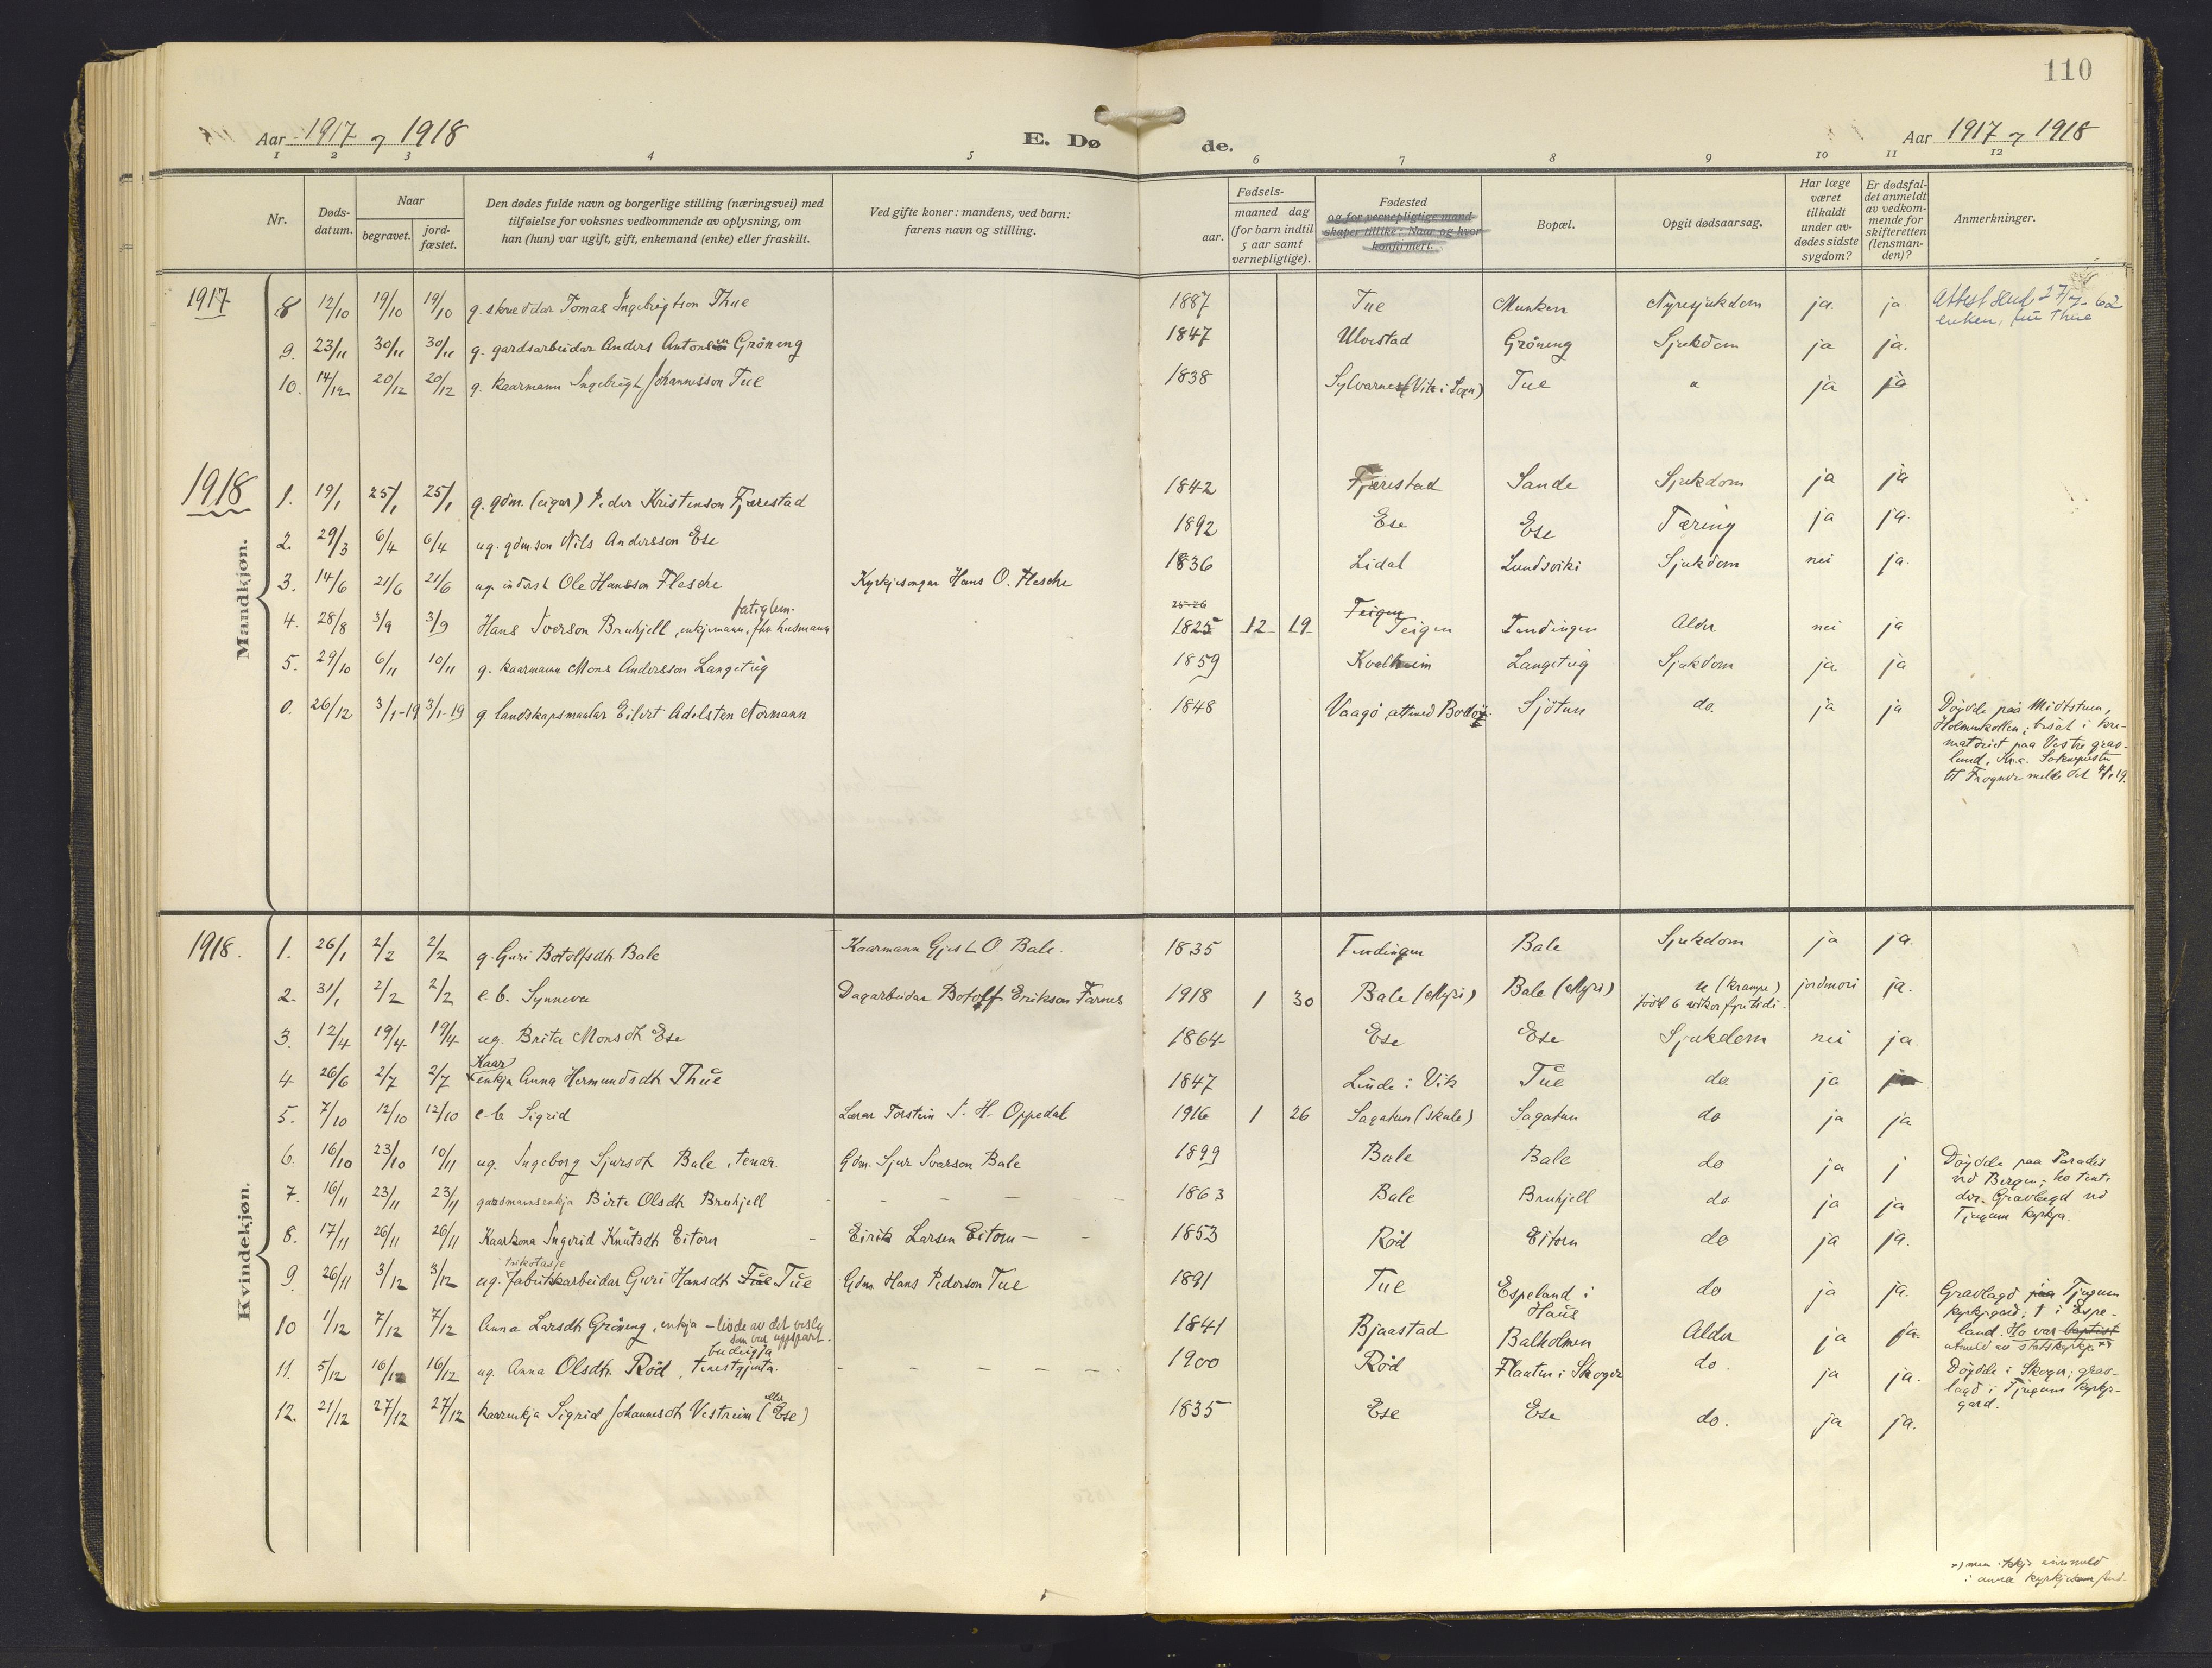 110
Aar 1917 og 1918
E. Døde.
Aar 1917 og 1918
1 2 3 4 5 6 7 8 9 10 11 12
Nr.
Døds-
datum.
Naar
begravet.
jord-
fæstet.
Den dødes fulde navn og borgerlige stilling (næringsvei) med
tilføielse for voksnes vedkommende av oplysning, om
han (hun) var ugift, gift, enkemand (enke) eller fraskilt.
Ved gifte koner: mandens, ved barn:
farens navn og stilling.
Fødsels-
aar.
maaned dag
(for barn indtil
5 aar samt
vernepligtige).
Fødested
og for vernepligtige mand-
skaper tillike: Naar og hvor
konfirmert.
Bopæl.
Opgit dødsaarsag.
Har læge
været
tilkaldt
under av-
dødes sidste
sygdom?
Er dødsfal-
det anmeldt
av vedkom-
mende for
skifteretten
(lensman-
den)?
Anmerkninger.
Mandkjøn.
1917
8 12/10 19/10 19/10 g. skreddar Tomas Ingebrigtson Thue 1887 Tue Munken Nyresjukdom ja. ja Attest send 27/7-62
enken, Thue
9. 23/11 30/11 30/11 g. gardsarbeidar Anders Antonsen Grøneng 1847 Ulvestad Grøneng Sjukdom ja ja.
10. 14/12 20/12 20/12 g. kaarmann Ingebrigt Johannesson Tue 1838 Sylvarnes (Vik i Sogn) Tue " ja ja
1918
1. 19/1 25/1 25/1 g. gdm. (eigar) Peder Kristenson Fjærestad 1842 Fjærestad Sande Sjukdom ja ja
2. 29/3 6/4 6/4 ug. gdm.son Nils Andersson Ese 1892 Ese Ese Tæring ja ja.
3. 14/6 21/6 21/6 ug. inderst Ole Hansson Flesche Kyrkjesongar Hans O. Flesche 1836 Lidal Lundsviki Sjukdom nei ja.
fatiglem.
25-26 Teigen
4. 28/8 3/9 3/9 Hans Iverson Bruhjell, enkjemann, fhv husmann 1825 12 19 Teigen Tendingen Alder nei ja
5. 29/10 6/11 10/11 g. kaarmann Mons Andersson Langeteig 1859 Kvalheim Langeteig Sjukdom ja ja
0. 26/12 3/1-19 3/1-19 g. landskapsmaalar Eilert Adelsten Normann 1848 Vaagø attmed Bodø Sjøtun do. ja ja Døydde paa Midtstuen,
Holmenkollen; bisat i kre-
matoriet paa Vestre grav-
lund, Kr.a. Soknepresten
til Frogner melde det 4/1 19.
Kvindekjøn.
1918.
1. 26/1 2/2 2/2 g. Guri Botolfsdtr Bale Kaarmann Gjest O. Bale. 1835 Tendingen Bale Sjukdom ja ja.
2. 31/1 2/2 2/2 e. b. Synneva Dagarbeidar Botolf Erikson Farnes 1918 1 30 Bale (Myri) Bale (Myri) " (krampe) jordmori ja.
fødd 6 vikor fyre tidi.
3. 12/4 19/4 19/4 ug. Brita Monsdtr Ese 1864 Ese Ese Sjukdom nei ja.
Kaar
4 26/6 2/7 2/7 enkja Anna Hermundsdtr Thue 1847 Linde i Vik Tue do ja ja
5. 7/10 12/10 12/10 e. b. Sigrid Lærar Torstein T. H. Oppedal 1916 1 26 Sagatun (skule) Sagatun do ja ja
6. 16/10 23/10 10/11 ug. Ingeborg Sjursdtr Bale, tenar. Gdm. Sjur Ivarson Bale 1899 Bale Bale do ja j Døydde paa Paradis
ved Bergen; ho tente
der. Gravlagd ved
Tjugum kyrkja.
7. 16/11 23/11 23/11 gardmannsenkja Birte Olsdtr Bruhjell - - - - - - 1863 Bale Bruhjell do ja ja
8. 17/11 26/11 26/11 Kaarkona Ingerid Knutsdtr Eitorn - Eirik Larsen Eitorn - - 1853 Rød Eitorn do ja ja.
trikotasje
9 26/11 3/12 3/12 ug. fabrikkarbeidar Guri Hansdtr Tue Tue Gdm. Hans Pederson Tue 1891 Tue Espeland i
Haus do ja ja. Gravlagd paa Tjugum
kyrkjegard; † i Espe-
land. Ho var baptist
utmeld av statskyrkja x)
10 1/12 7/12 7/12 Anna Larsdtr Grøneng, enkja - livde av det vesle
som var uppspart. 1841 Bjaastad Balholmen Alder ja ja.
budeigja
11. 5/12 16/12 16/12 ug. Anna Olsdtr. Rød, tenestgjenta. - - - - - - 1900 Rød Flaaten i Skoger do. ja ja. Døydde i Skoger; grav-
lagd i Tjugum kyrkje-
gard.
eller
12. 21/12 27/12 27/12 kaarenkja Sigrid Johannesdtr Vestreim (Ese) 1835 Ese Ese do. ja ja.
x) men ikkje innmeld
i anna kyrkjesamfund.